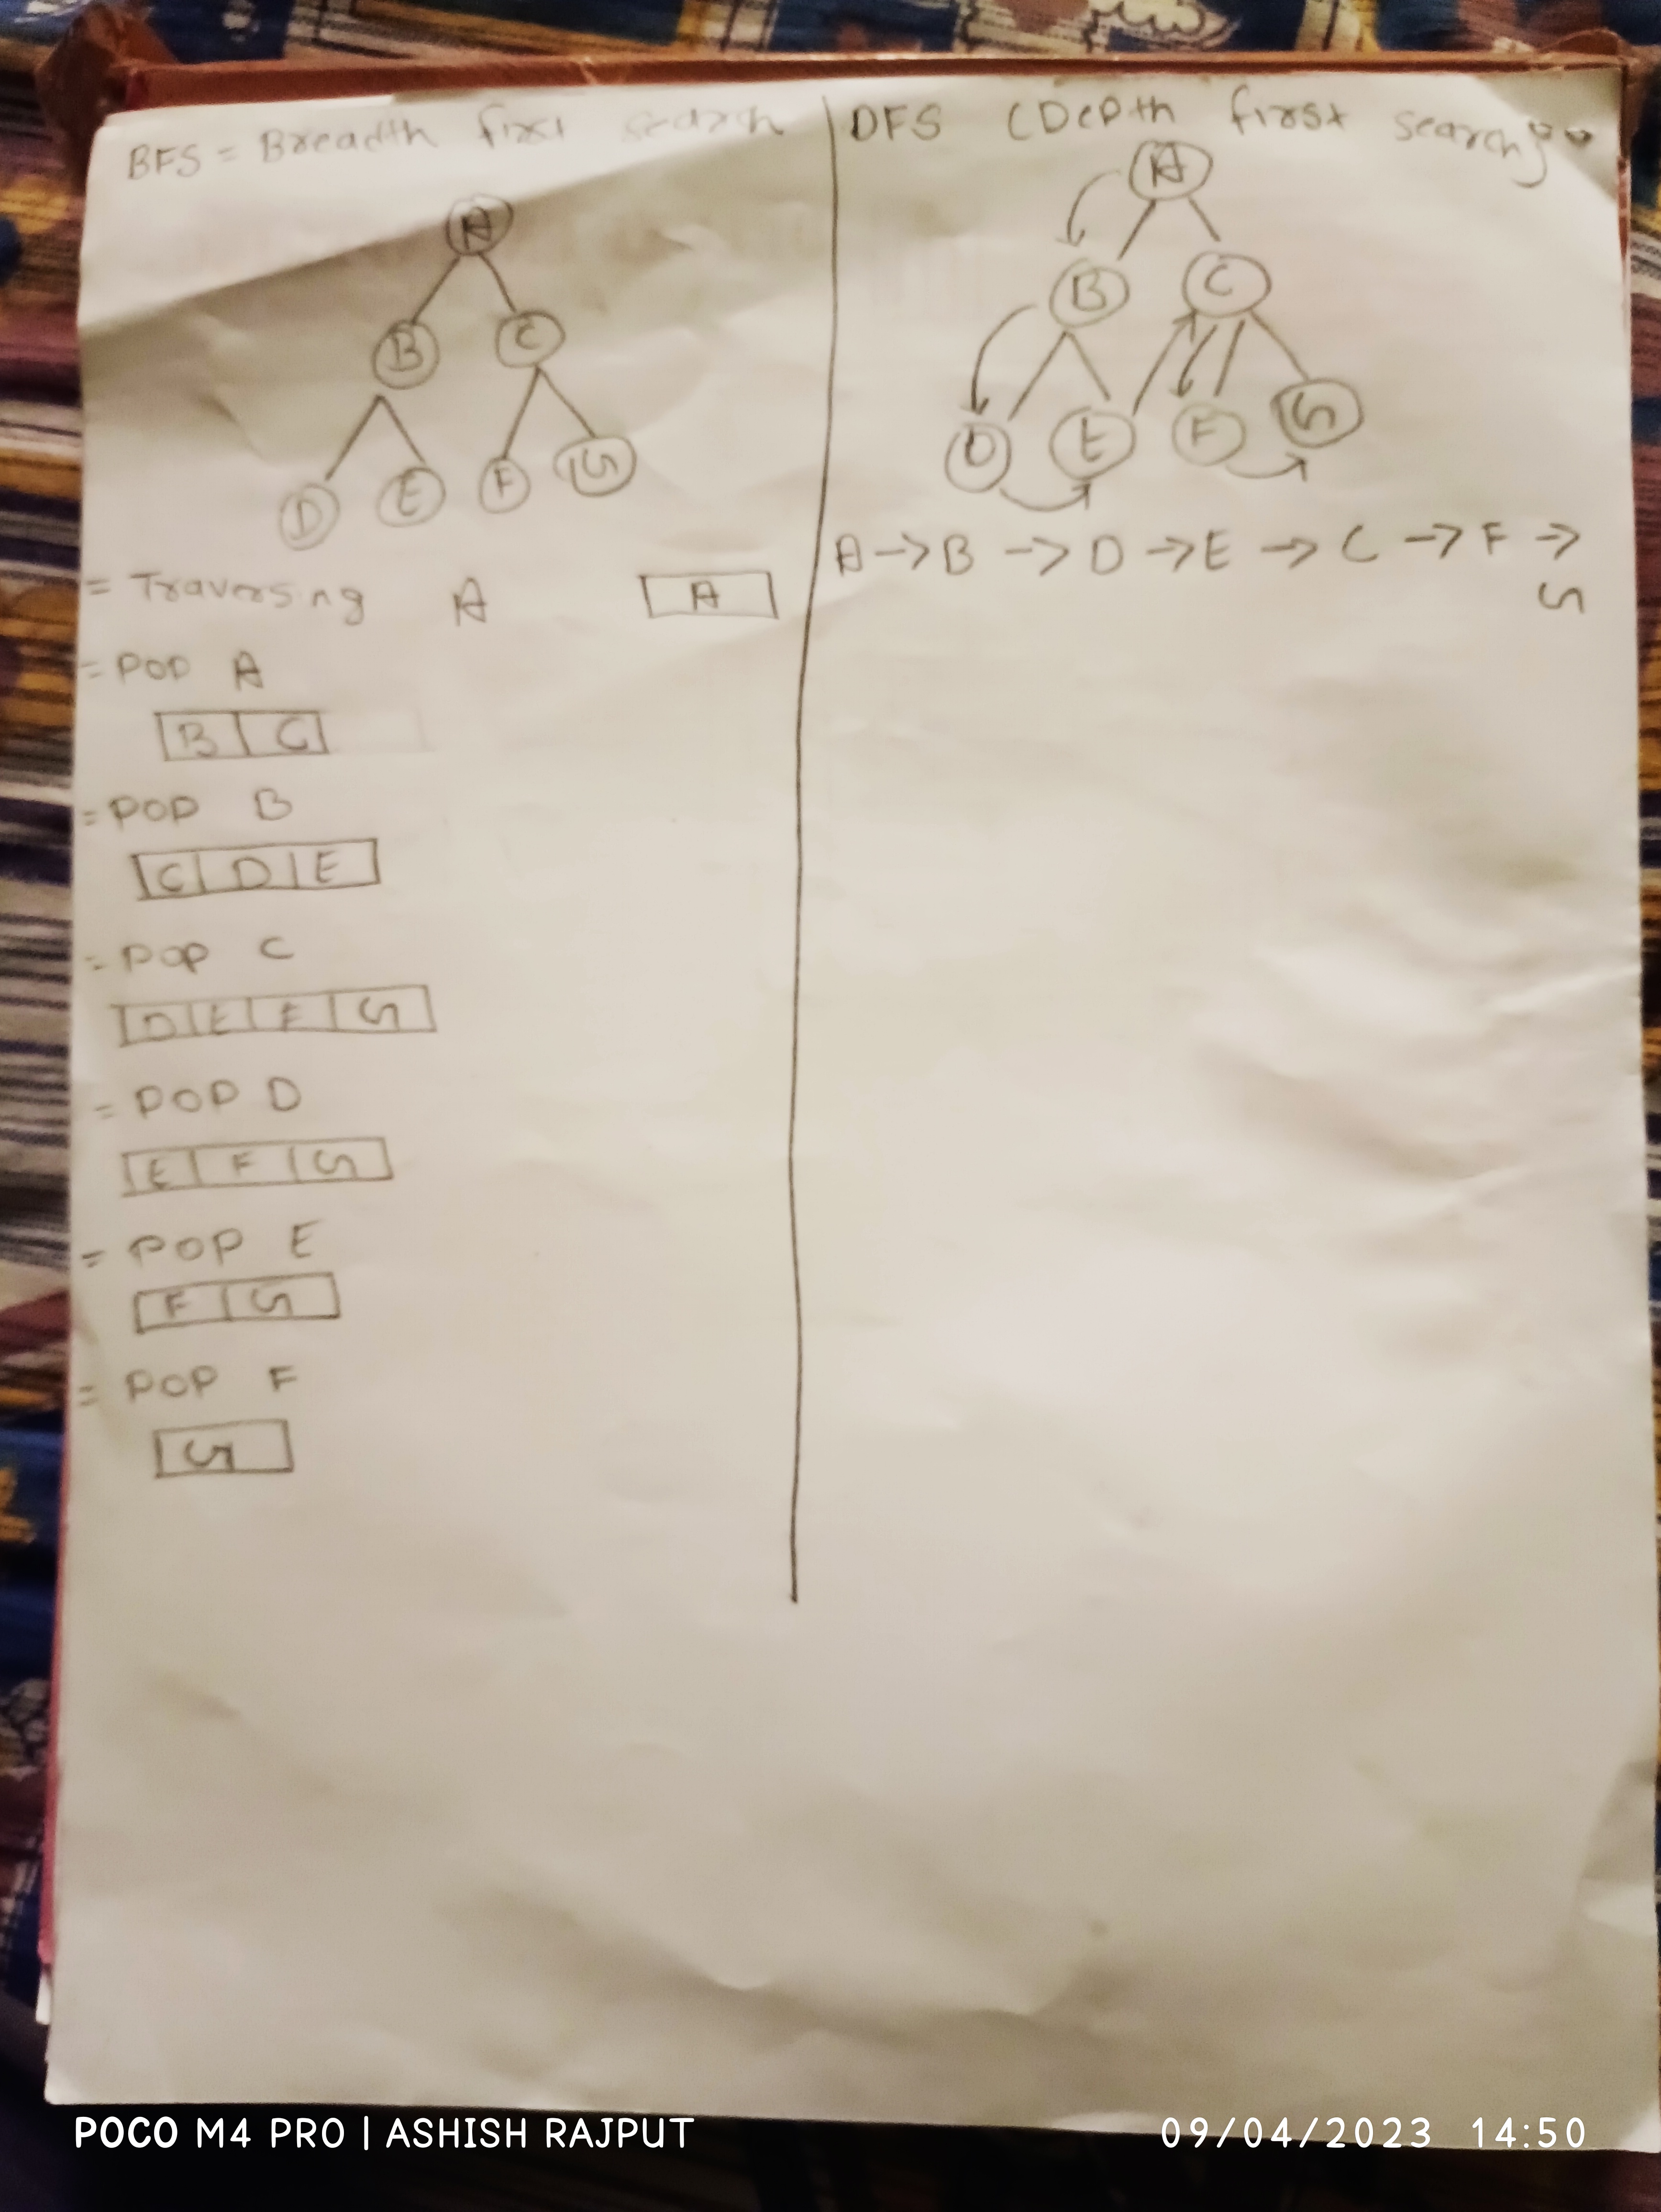 BFS = Breadth first search
A
B C
D E F G
= Traversing A A
= POP A
B C
= POP B
C D E
= POP C
D E F G
= POP D
E F G
= POP E
F G
= POP F
G
DFS (Depth first search)
A
B C
D E F G
A -> B -> D -> E -> C -> F ->
G
POCO M4 PRO | ASHISH RAJPUT
09/04/2023 14:50